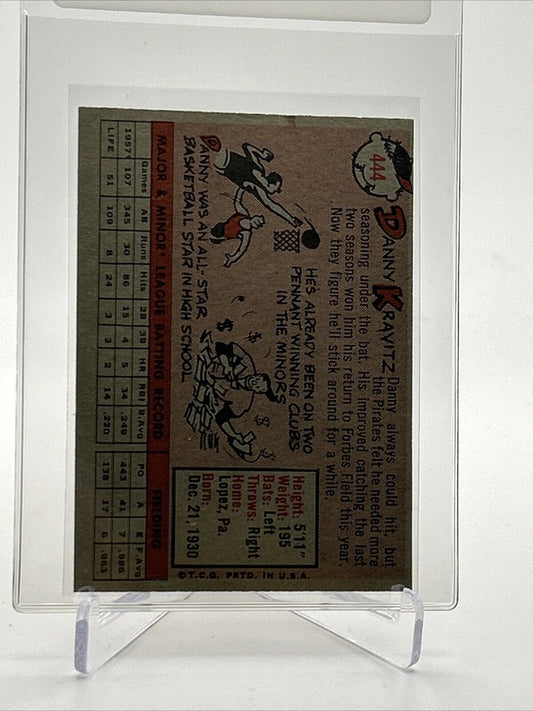 444
DANNY KRAVITZ
Danny always could hit, but
the Pirates felt he needed more
seasoning under the bat. His improved catching the last
two seasons won him his return to Forbes Field this year.
Now they figure he'll stick around for a while.
DANNY WAS AN ALL-STAR
BASKETBALL STAR IN HIGH SCHOOL
HE'S ALREADY BEEN ON TWO
PENNANT WINNING CLUBS
IN THE MINORS
$
$
$
Height: 5'11"
Weight: 195
Bats: Left
Throws: Right
Home:
Lopez, Pa.
Born:
Dec. 21, 1930
MAJOR & MINOR* LEAGUE BATTING RECORD FIELDING
Games AB Runs Hits 2B 3B HR RBI B.Avg PO A E F.Avg
1957* 107 345 30 86 15 4 5 34 .249 443 41 7 .986
LIFE 51 109 8 24 3 2 2 14 .220 138 17 6 .963
©T.C.G. PRTD. IN U.S.A.